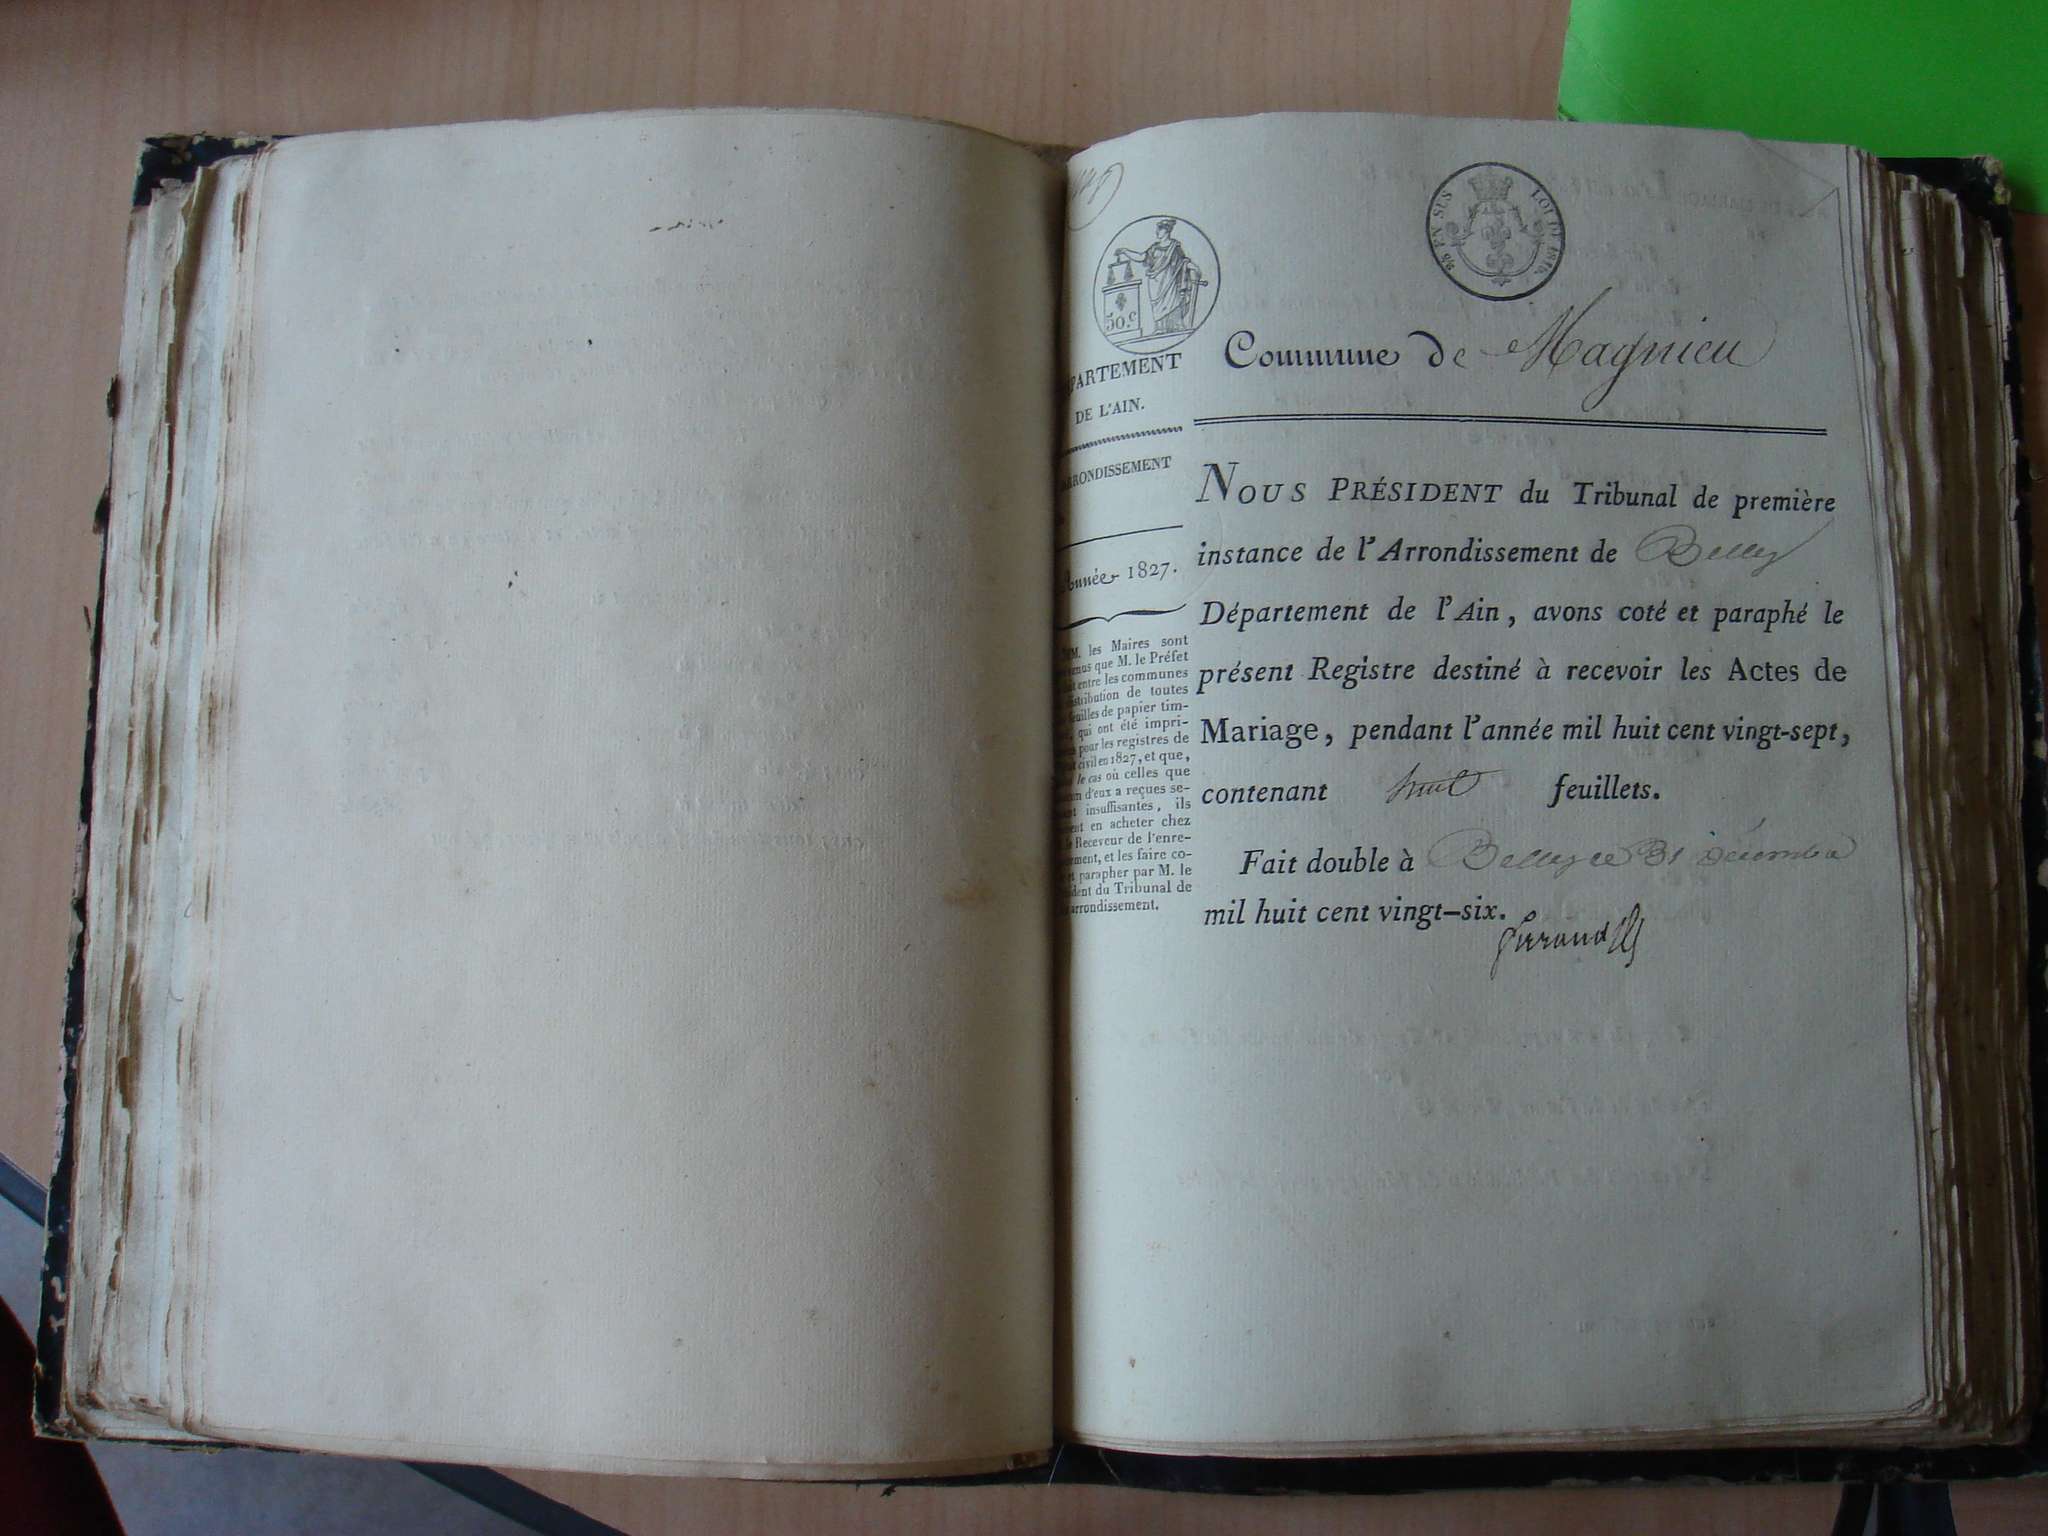 50.c
EN SUS
LOI DE 1816
PARTEMENT
DE L'AIN.
RRONDISSEMENT
Année 1827.
M. les Maires sont
enus que M. le Préfet
entre les communes
stribution de toutes
feuilles de papier tim-
, qui ont été impri-
pour les registres de
civil en 1827, et que,
le cas où celles que
un d'eux a reçues se-
nt insuffisantes, ils
ent en acheter chez
le Receveur de l'enre-
ement, et les faire co-
et parapher par M. le
ident du Tribunal de
arrondissement.
Commune de Magnieu
NOUS PRÉSIDENT du Tribunal de première
instance de l'Arrondissement de Belley
Département de l'Ain, avons coté et paraphé le
présent Registre destiné à recevoir les Actes de
Mariage, pendant l'année mil huit cent vingt-sept,
contenant huit feuillets.
Fait double à Belley ce 31 Décembre
mil huit cent vingt-six.